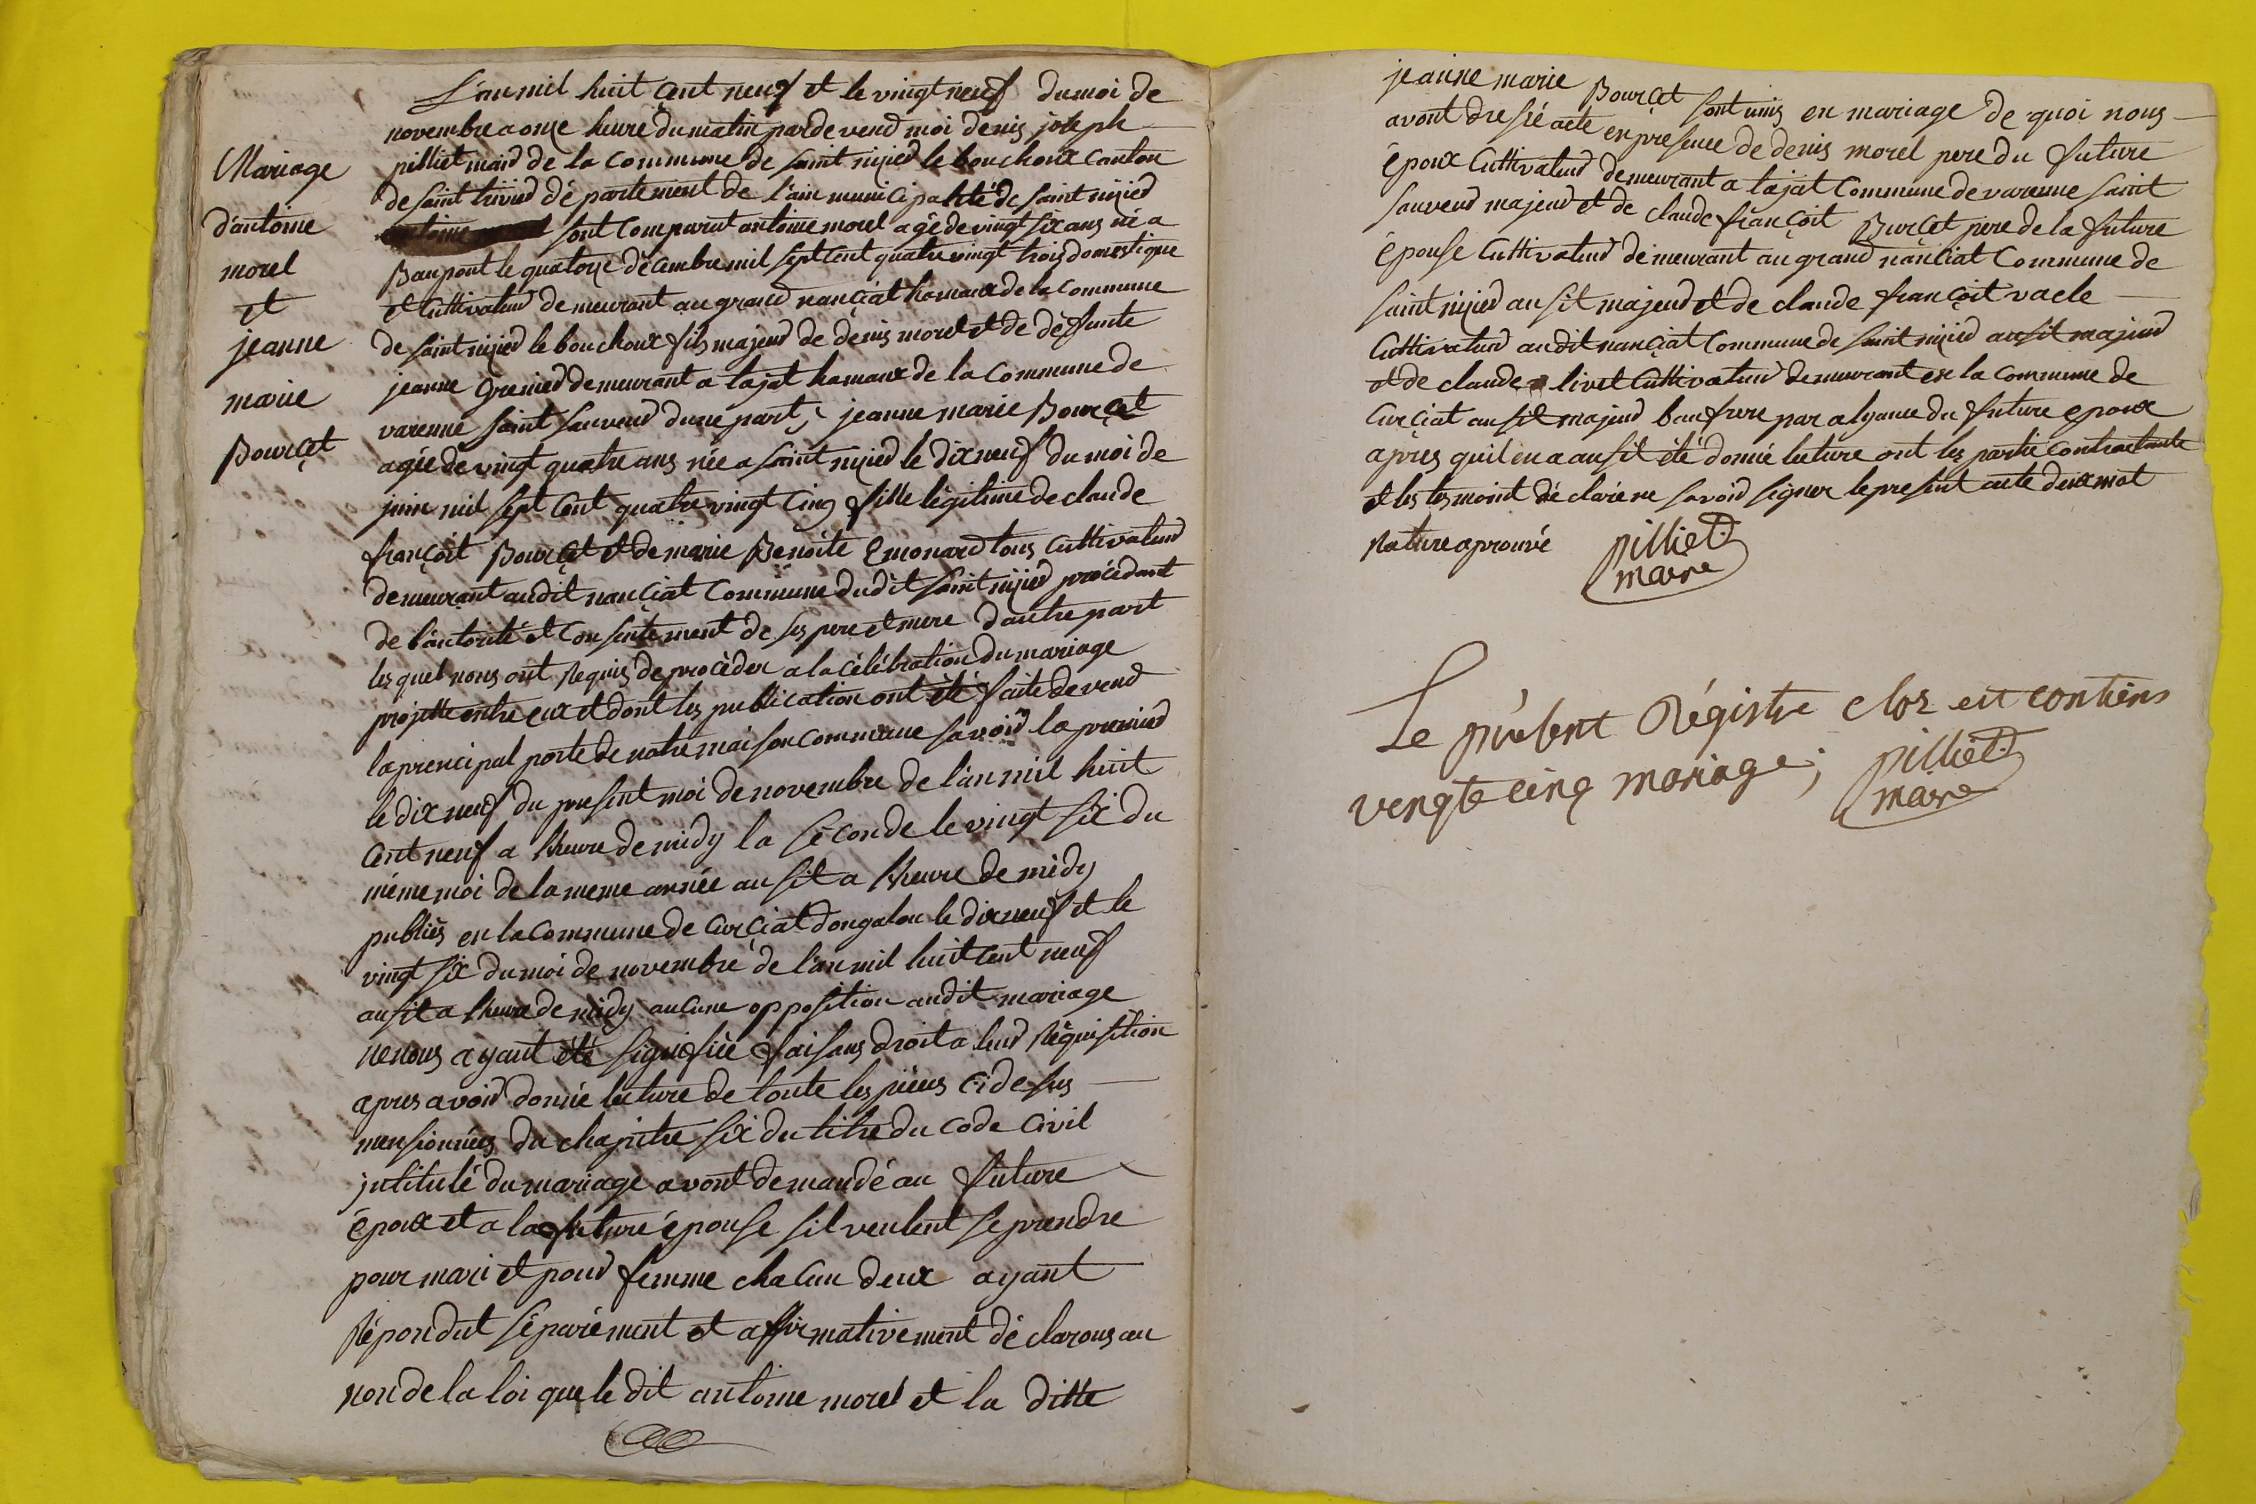 Mariage
d'antoine
morel
et
jeanne
marie
Bourçet
L'an mil huit çent neuf et le vingt neuf du moi de
novembre a onze heure du matin pardevend moi denis joseph
pilliet maid de la commune de saint nizied le bouchoux canton
de saint trivied département de l'ain municipalité de saint nizied
sont comparut antoine morel agé de vingt six ans né a
Baupont le quatorze décembre mil sept cent quatre vingt trois domestique
et Cultivateud demeurant au grand nançiat hamaux de la commune
de saint nizied le bouchoux fils majeud de denis morel et de défunte
jeanne Grenied demeurant a lajat hamaux de la commune de
varenne saint sauveud dune part, jeanne marie Bourçet
agée de vingt quatre ans née a saint nizied le dix neuf du moi de
juin mil sept Cent quatre vingt Cinq fille legitime de claude
françoit Bourçet et de marie Benoite Emonard tous Cultivateud
demeurant audit nançiat Commune dudit saint nizied procédant
de l'autorité et Consentement de ses pere et mere d'autre part
lesquel nous ont Requis de procèder a la célébration du mariage
projette entre eux et dont les publication ont été faite devend
la prencipal porte de notre maison commune savoir la premied
le dix neuf du present moi de novembre de l'an mil huit
Cent neuf a l'heure de midy la séconde le vingt six du
même moi de la meme année ausit a l'heure de midy
publiés en la commune de Curçiat dongalon le dix neuf et le
vingt six du moi de novembre de l'an mil huit cent neuf
ausit a l'heure de midy aucune opposition audit mariage
ne nous ayant été signifiée faisans droit a leud Réquisition
apres avoid donnée lecture de toute les pièces ci desus
mensionnées du chapitre six du titre du code Civil
jntitulé du mariage avont demandé au future
époux et a la future épouse sil veulent se prendre
pour mari et poud femme chacun deux ayant
Répondut séparément et affirmativement déclarons au
non de la loi que le dit antoine morel et la ditte
jeanne marie Bourçet sont unis en mariage de quoi nous
avont dressé acte en presence de denis morel pere du future
époux Cultivateud demeurant a lajat Commune de varenne saint
sauveud majeud et de claude françoit Burçet pere de la future
épouse Cultivateud demeurant au grand nançiat Commune de
saint nizied ausit majeud et de claude françoit vacle
Cultivateud audit nançiat Commune de saint nizied ausit majeud
et de claude livet Cultivateud demeurant en la commune de
Curçiat ausit majeud baufrere par alyance du future epoux
apres quil en a ausit été donné lecture ont les partie contractante
et les temoint déclaré ne savoid signer le present acte deux mot
Rature aprouvé pilliet
maire
Le présent Régistre clos est contiens
vengte cinq mariage; pilliet
maire